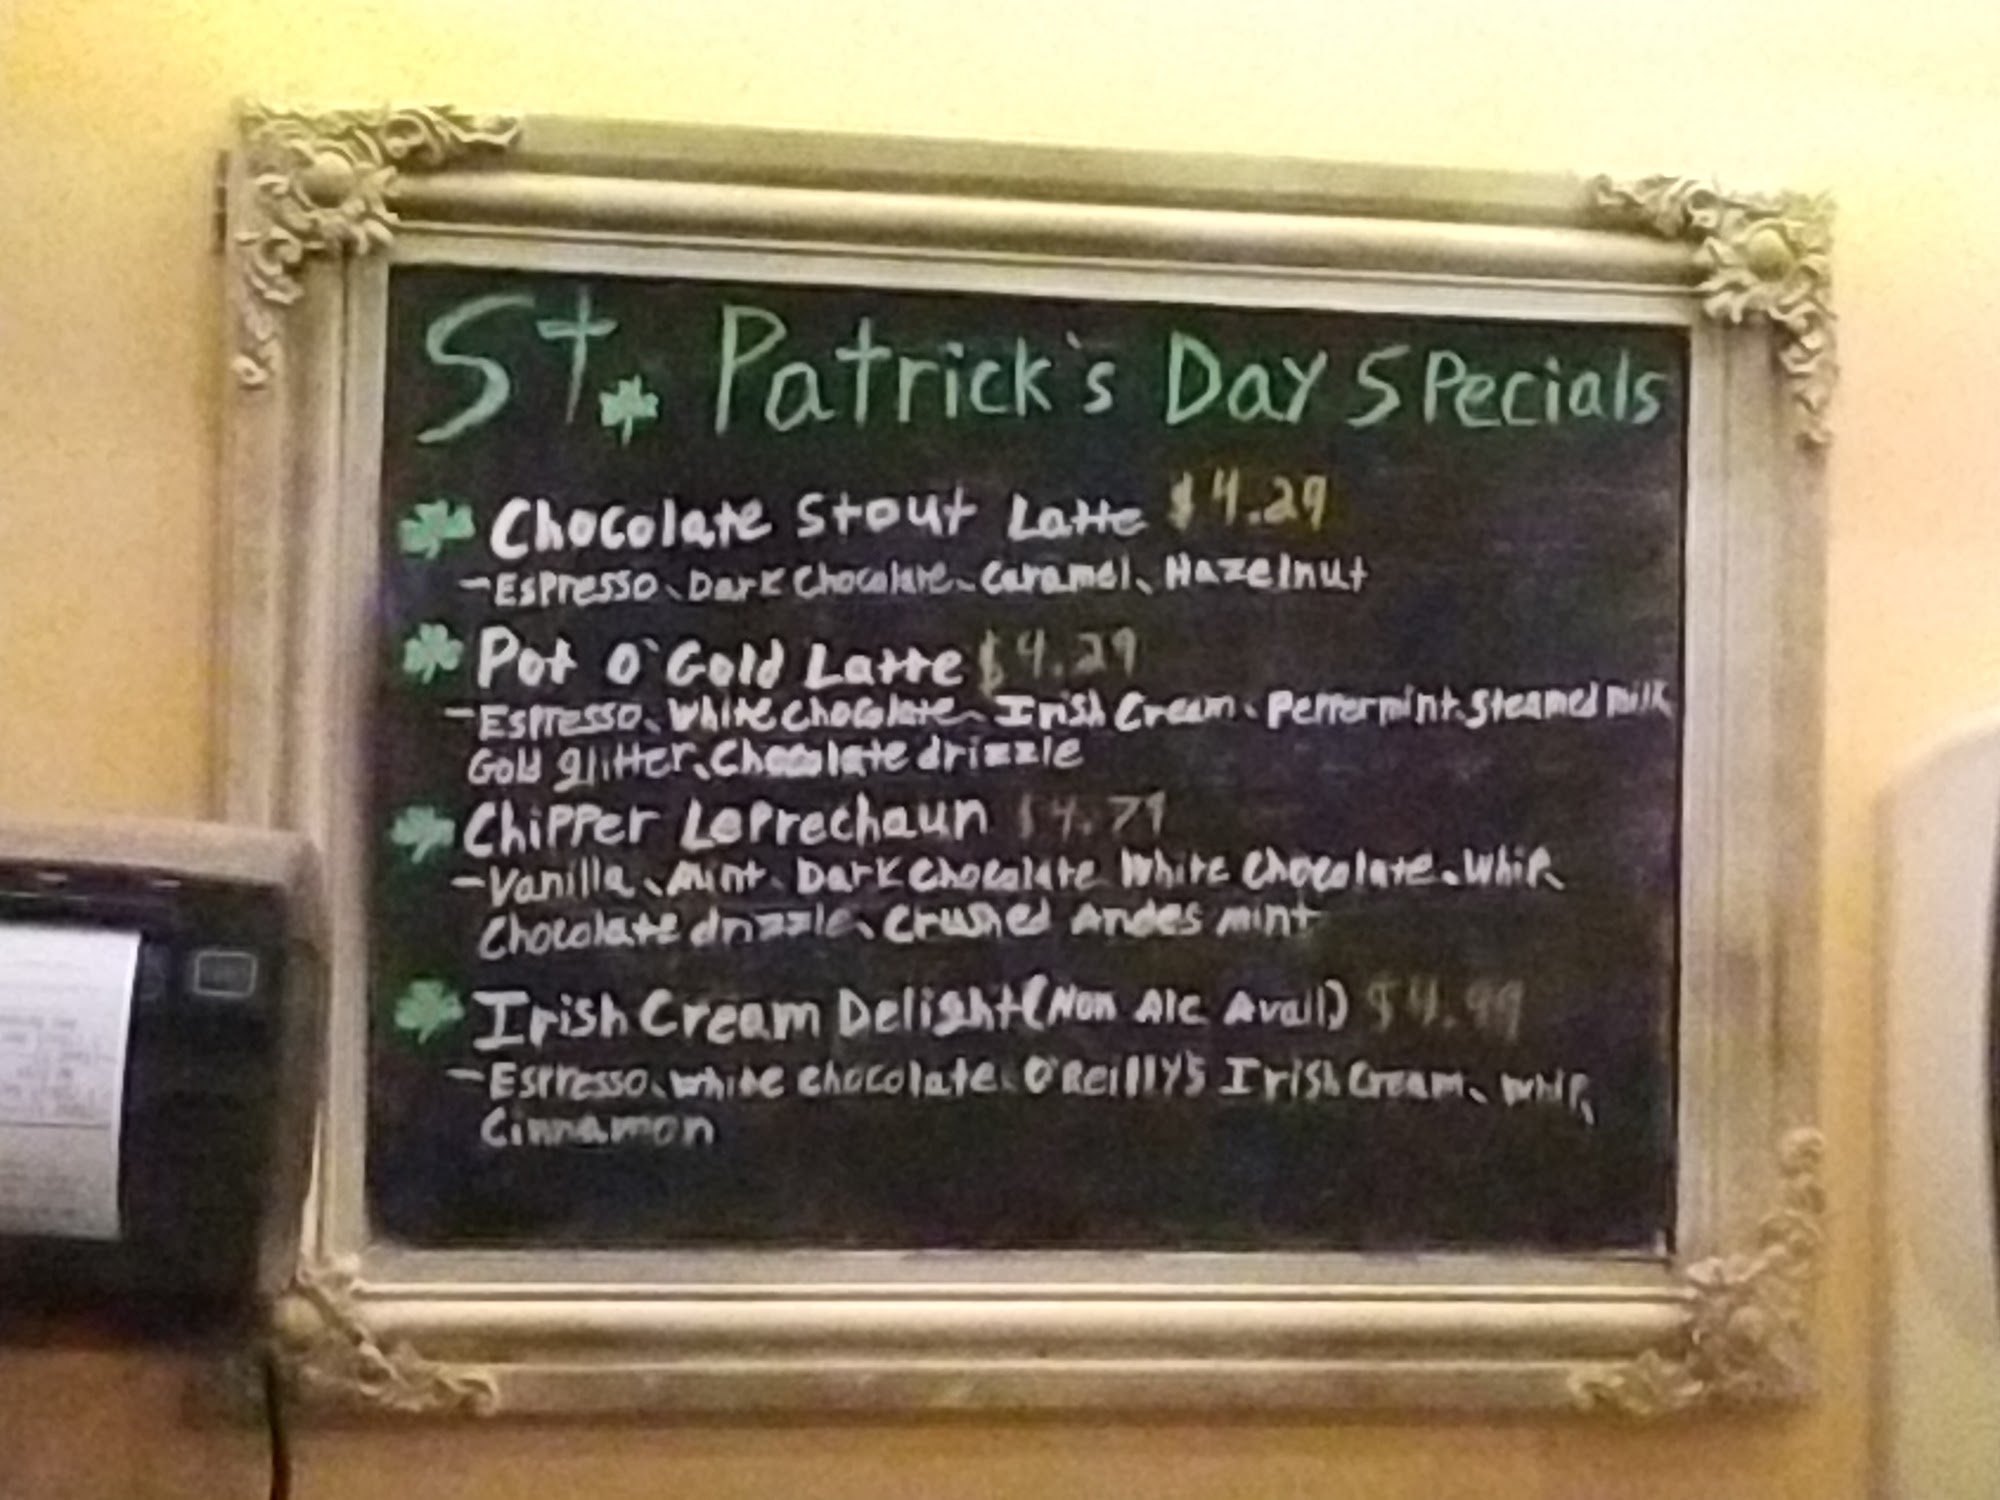 St. Patrick's Day Specials
Chocolate Stout Latte $4.29
-Espresso, Dark Chocolate, Caramel, Hazelnut
Pot O' Gold Latte $4.29
-Espresso, White chocolate, Irish Cream, Peppermint, Steamed milk
Gold glitter, Chocolate drizzle
Chipper Leprechaun $4.79
-Vanilla, Mint, Dark Chocolate White Chocolate, Whip,
Chocolate drizzle, Crushed Andes mint
Irish Cream Delight (Non Alc Avail) $4.99
-Espresso, white chocolate, O'Reilly's Irish Cream, whip,
Cinnamon